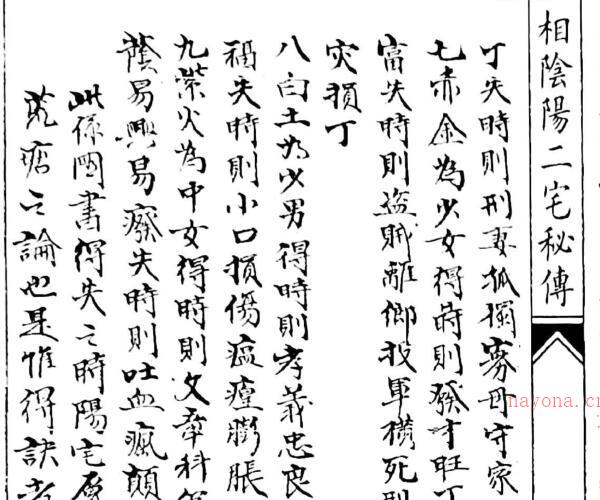 相陰陽二宅秘傳
丁失時則刑妻孤獨寡母守家
七赤金為少女得時則發才旺丁
富失時則盜賊離鄉投軍橫死
灾損丁
八白土為少男得時則孝義忠良
禍失時則小口損傷瘟瘟膨脹
九紫火為中女得時則文章科
蔭易興易癈失時則吐血瘋顛
此係圖書得失之時陽宅
荒唐之論也是惟得訣者
nayona.cn